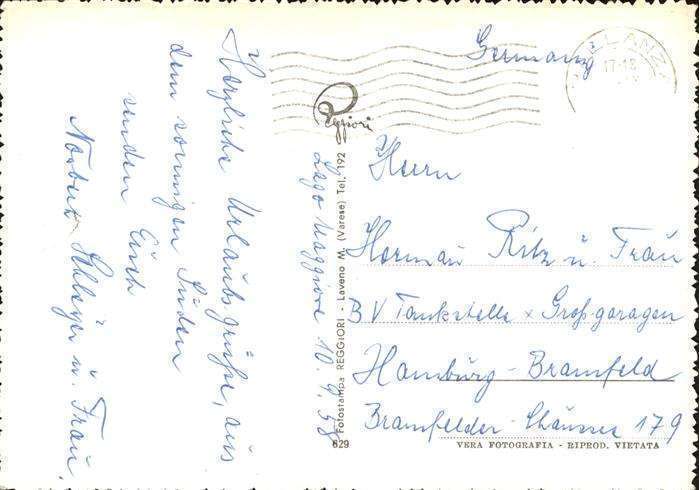 Lago Maggiore 10.9.58
Herzliche Urlaubsgrüße, aus
dem sonnigen Süden
senden Euch
Norbert u. Frau.
Germany
17-18
Reggiori
Herrn
Herman Ritz u. Frau
BV Tankstelle x Großgaragen
Hamburg-Bramfeld
Bramfelder-Chaussee 179
Fotostampa REGGIORI - Laveno M. (Varese) Tel. 192
629
VERA FOTOGRAFIA - RIPROD. VIETATA